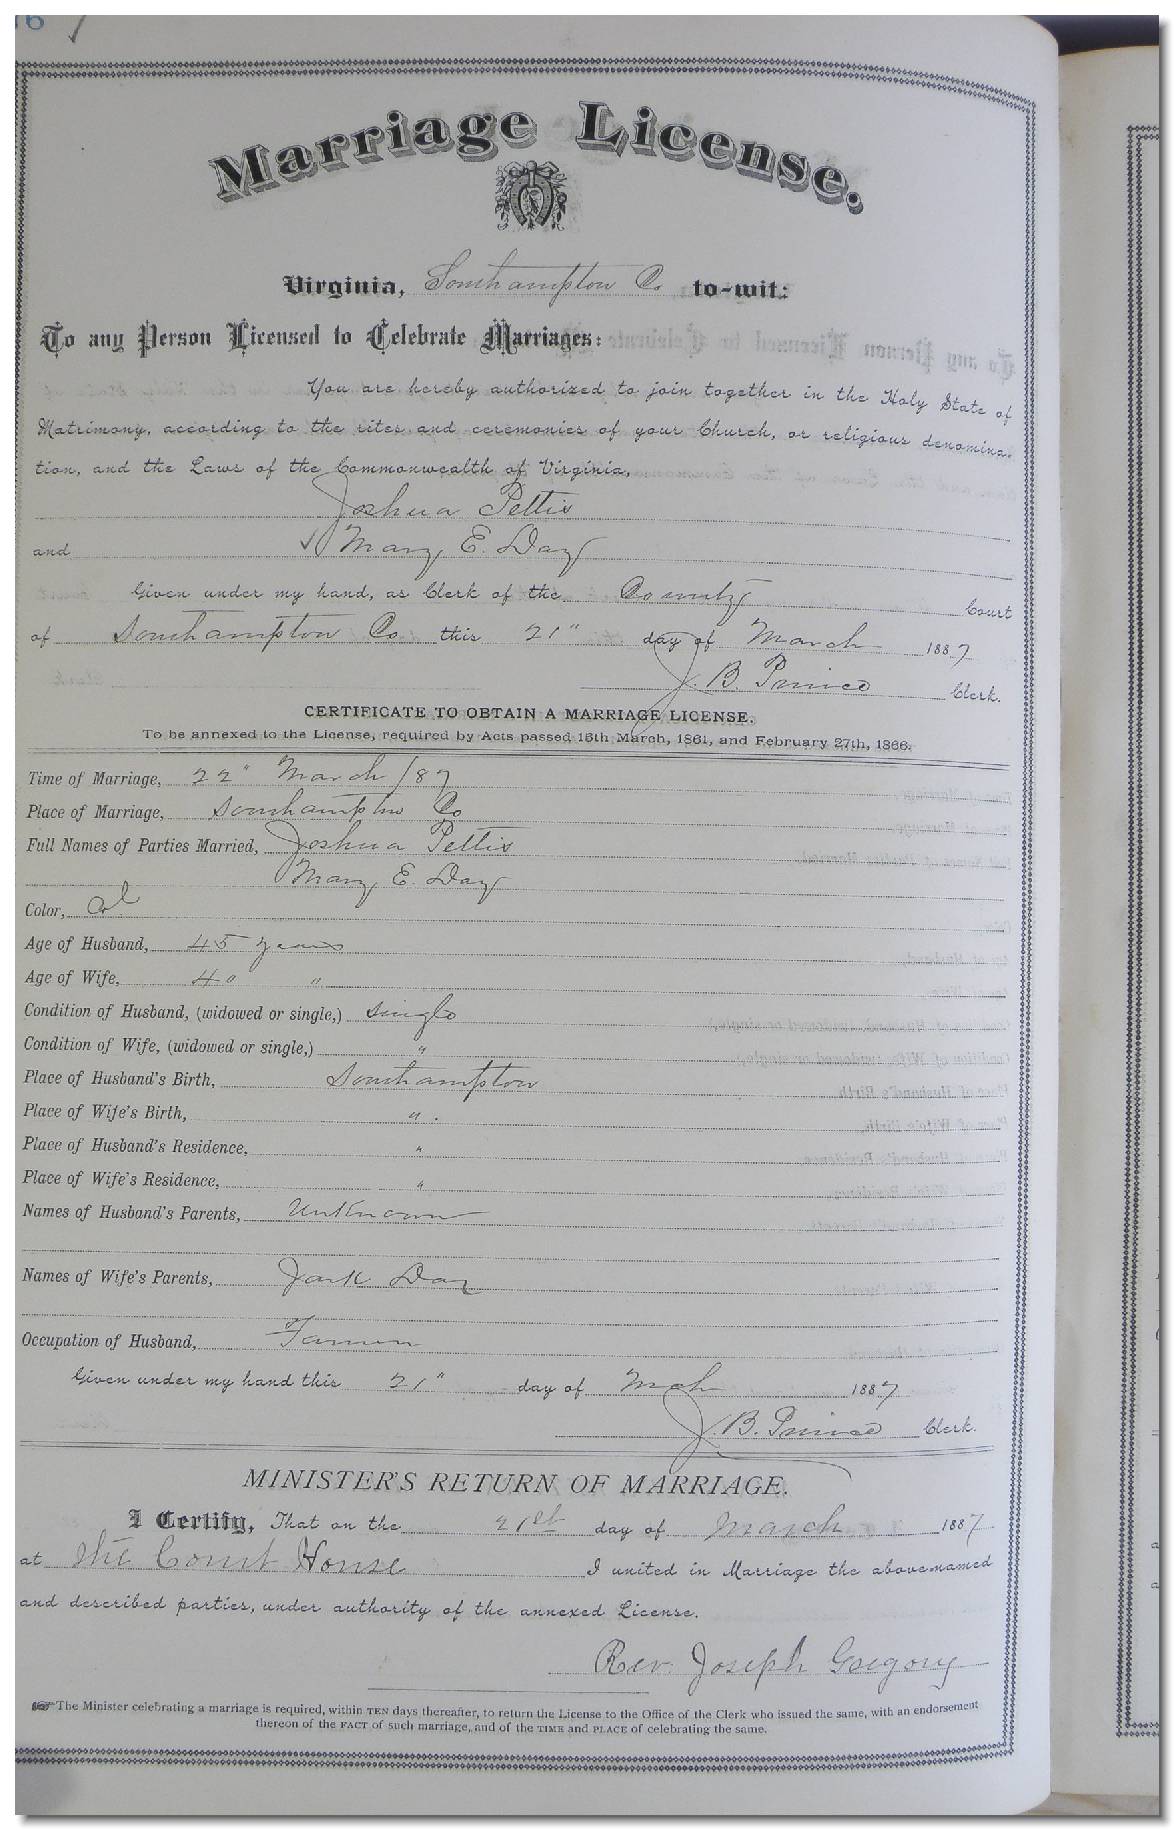 Marriage License.
Virginia, Southampton Co to-wit:
To any Person Licensed to Celebrate Marriages:
You are hereby authorized to join together in the Holy State of
Matrimony, according to the rites and ceremonies of your Church, or religious denomina-
tion, and the Laws of the Commonwealth of Virginia,
Joshua Pettis
and Mary E. Day
Given under my hand, as Clerk of the County Court
of Southampton Co. this 21" day of March 1887
J. B. Prince Clerk.
CERTIFICATE TO OBTAIN A MARRIAGE LICENSE.
To be annexed to the License, required by Acts passed 16th March, 1861, and February 27th, 1866.
Time of Marriage, 22" March /87
Place of Marriage, Southampton Co
Full Names of Parties Married, Joshua Pettis
Mary E. Day
Color, Col
Age of Husband, 45 years
Age of Wife, 40 "
Condition of Husband, (widowed or single,) Single
Condition of Wife, (widowed or single,) "
Place of Husband's Birth, Southampton
Place of Wife's Birth, "
Place of Husband's Residence, "
Place of Wife's Residence, "
Names of Husband's Parents, Unknown
Names of Wife's Parents, Jack Day
Occupation of Husband, Farmer
Given under my hand this 21" day of Mch 1887
J. B. Prince Clerk.
MINISTER'S RETURN OF MARRIAGE.
I Certify, That on the 21st day of March 1887
at the Court House I united in Marriage the above-named
and described parties, under authority of the annexed License.
Rev. Joseph Gregory
The Minister celebrating a marriage is required, within TEN days thereafter, to return the License to the Office of the Clerk who issued the same, with an endorsement
thereon of the FACT of such marriage, and of the TIME and PLACE of celebrating the same.